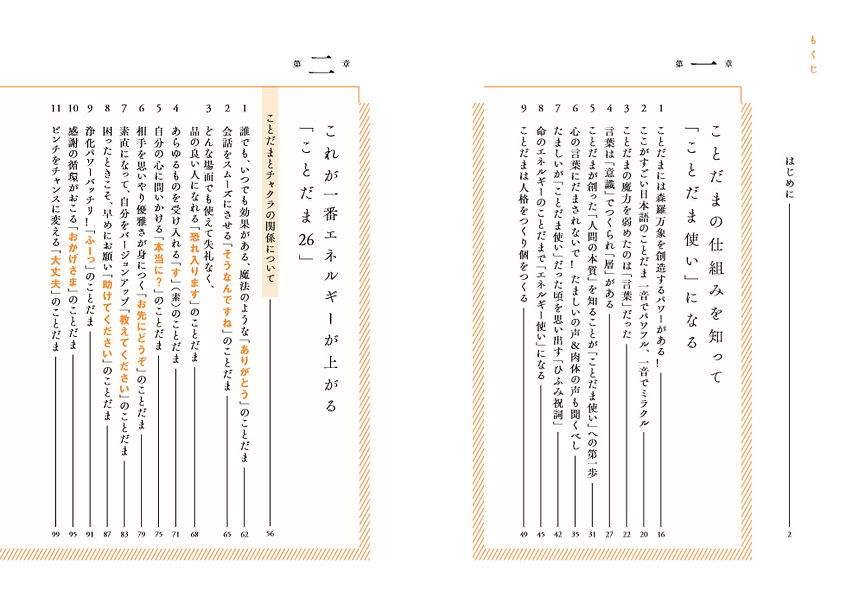 もくじ
はじめに 2
第一章
ことだまの仕組みを知って
「ことだま使い」になる
1 ことだまには森羅万象を創造するパワーがある! 16
2 ここがすごい日本語のことだま 一音でパワフル、一音でミラクル 20
3 ことだまの魔力を弱めたのは「言葉」だった 22
4 言葉は「意識」でつくられ「層」がある 27
5 ことだまが創った「人間の本質」を知ることが「ことだま使い」への第一歩 31
6 心の言葉にだまされないで! たましいの声&肉体の声も聞くべし 35
7 たましいが「ことだま使い」だった頃を思い出す「ひふみ祝詞」 42
8 命のエネルギーのことだまで「エネルギー使い」になる 45
9 ことだまは人格をつくり個をつくる 49
第二章
これが一番エネルギーが上がる
「ことだま26」
ことだまとチャクラの関係について 56
1 誰でも、いつでも効果がある、魔法のような「ありがとう」のことだま 62
2 会話をスムーズにさせる「そうなんですね」のことだま 65
3 どんな場面でも使えて失礼なく、
品の良い人になれる「恐れ入ります」のことだま 68
4 あらゆるものを受け入れる「す」(素)のことだま 71
5 自分の心に問いかける「本当に?」のことだま 75
6 相手を思いやり優雅さが身につく「お先にどうぞ」のことだま 79
7 素直になって、自分をバージョンアップ「教えてください」のことだま 83
8 困ったときこそ、早めにお願い「助けてください」のことだま 87
9 浄化パワーバッチリ!「ふーっ」のことだま 91
10 感謝の循環がおこる「おかげさま」のことだま 95
11 ピンチをチャンスに変える「大丈夫」のことだま 99